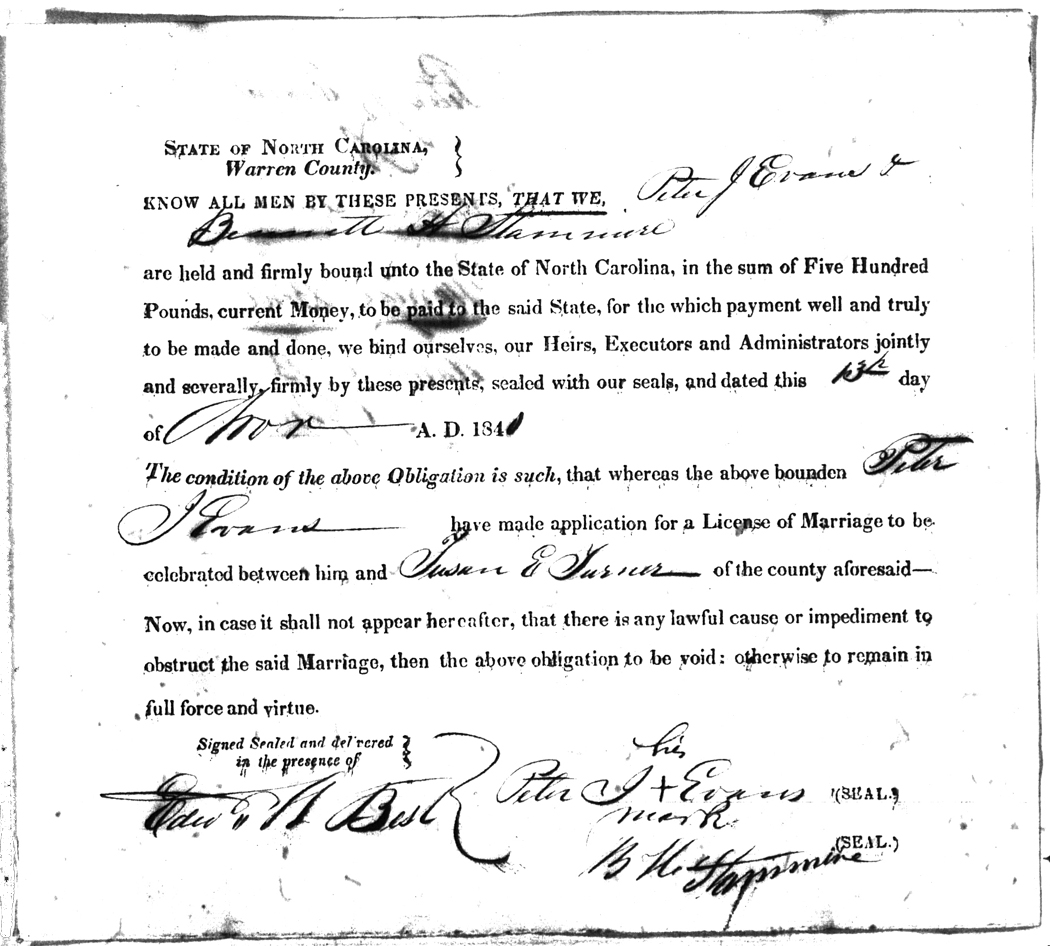 STATE OF NORTH CAROLINA,
Warren County.
KNOW ALL MEN BY THESE PRESENTS, THAT WE, Peter J Evans &
Bennett H Stammire
are held and firmly bound unto the State of North Carolina, in the sum of Five Hundred
Pounds, current Money, to be paid to the said State, for the which payment well and truly
to be made and done, we bind ourselves, our Heirs, Executors and Administrators jointly
and severally, firmly by these presents, sealed with our seals, and dated this 13th day
of Nov A. D. 184
The condition of the above Obligation is such, that whereas the above bounden Peter
J Evans have made application for a License of Marriage to be
celebrated between him and Susan E Turner of the county aforesaid—
Now, in case it shall not appear hereafter, that there is any lawful cause or impediment to
obstruct the said Marriage, then the above obligation to be void: otherwise to remain in
full force and virtue.
Signed Sealed and del'vered
in the presence of
his
Peter J + Evans (SEAL.)
mark
Edw. W Best
B H Stammire (SEAL.)